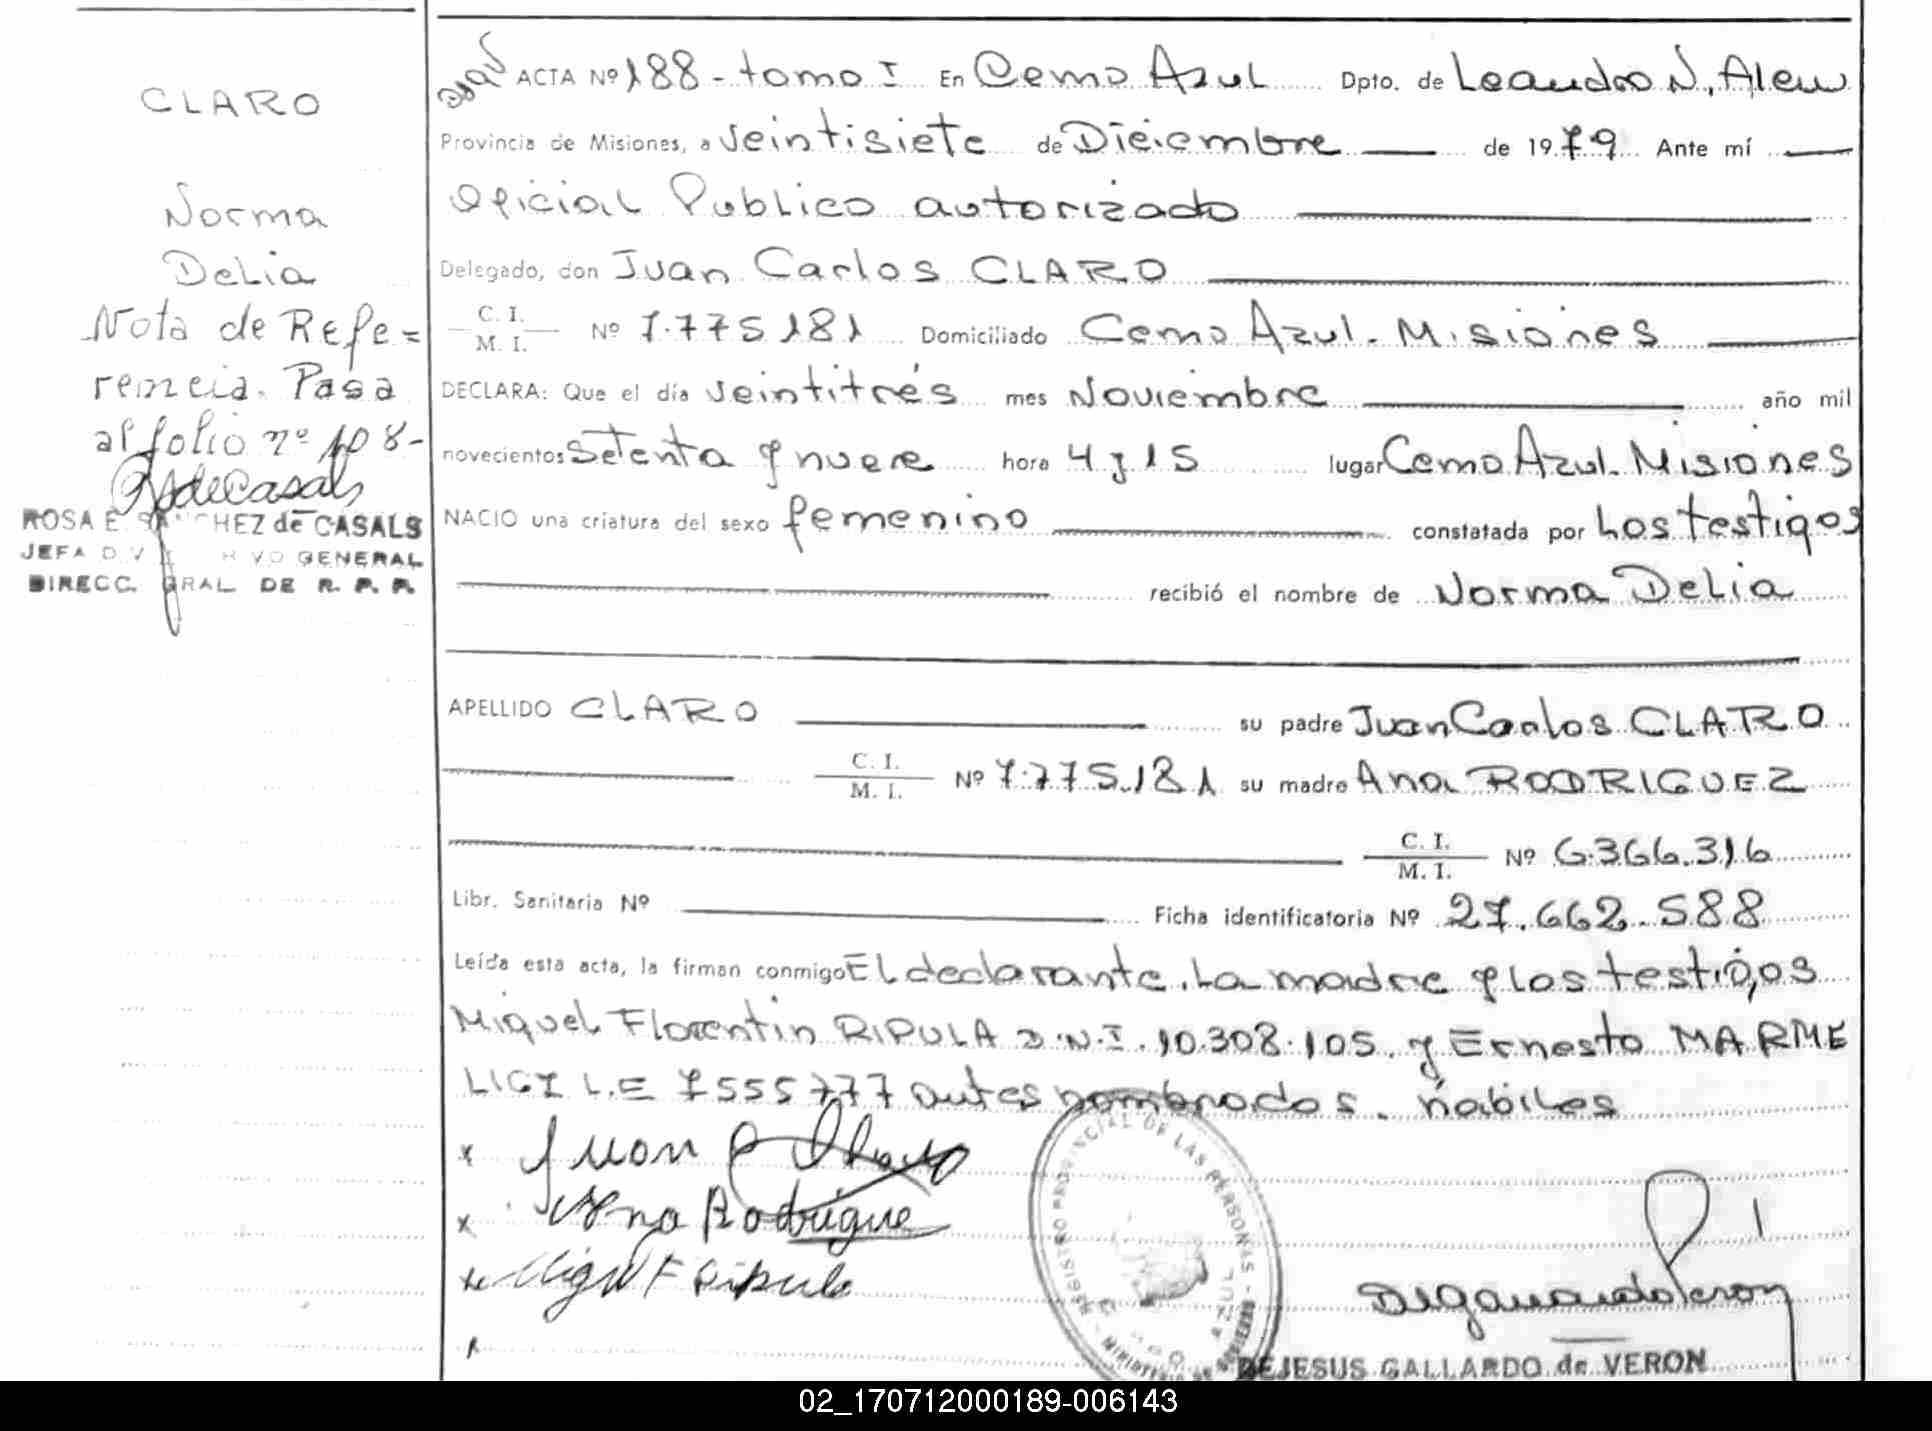 CLARO
Norma
Delia
Nota de Refe=
rencia. Pasa
al folio nº 108-
ROSA E. SANCHEZ de CASALS
JEFA GENERAL
DIRECC. GRAL. DE R. P. P.
ACTA Nº 188 - tomo I En Cerro Azul Dpto. de Leandro N. Alem
Provincia de Misiones, a veintisiete de Diciembre de 1979 Ante mí
Oficial Publico autorizado
Delegado, don Juan Carlos CLARO
C. I.
M. I. Nº 7.775.181 Domiciliado Cerro Azul. Misiones
DECLARA: Que el día veintitrés mes Noviembre año mil
novecientos setenta y nueve hora 4 y 15 lugar Cerro Azul. Misiones
NACIO una criatura del sexo femenino constatada por Los testigos
recibió el nombre de Norma Delia
APELLIDO CLARO su padre Juan Carlos CLARO
C. I.
M. I. Nº 7.775.181 su madre Ana RODRIGUEZ
C. I.
M. I. Nº 6.366.316
Libr. Sanitaria Nº Ficha identificatoria Nº 27.662.588
Leída esta acta, la firman conmigo El declarante, La madre y los testigos
Miguel Florentin RIPULA D.N.I. 10.308.105. y Ernesto MARME
LICZ L.E 7555777 antes nombrados. hábiles
x Juan C Claro
x Ana Rodrigue
x Miguel F Ripula
REGISTRO PROVINCIAL DE LAS PERSONAS - MINISTERIO DE GOBIERNO
AZUL
DEJESUS GALLARDO de VERON
02_170712000189-006143